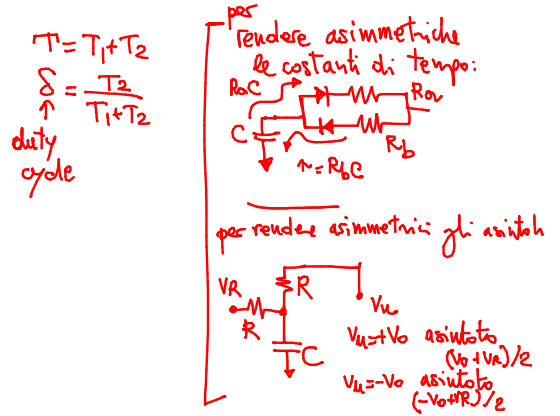 T = T1+T2
δ = T2 / T1+T2
duty
cycle
per
rendere asimmetriche
le costanti di tempo:
RaC
Ra
C
Rb
τ=RbC
per rendere asimmetrici gli asintoti
VR
R
R
Vu
C
Vu=+Vo asintoto
(Vo+VR)/2
Vu=-Vo asintoto
(-Vo+VR)/2